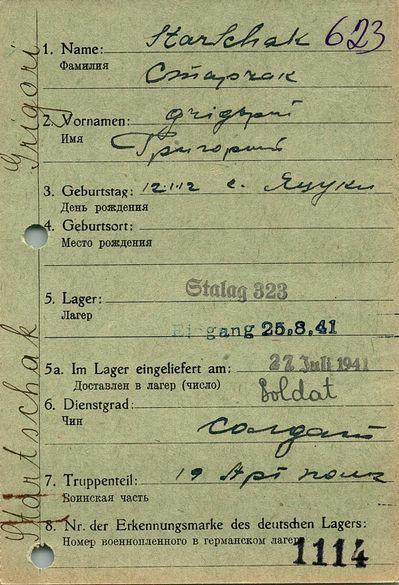 StarSchak 623
1. Name:
Фамилия
Старчак
2. Vornamen:
Имя
Григорий
3. Geburtstag: 12.1.12 с. Яцуки
День рождения
4. Geburtsort:
Место рождения
5. Lager: Stalag 323
Лагер
Eingang 25.8.41
5a. Im Lager eingeliefert am: 27 Juli 1941
Доставлен в лагер (число)
Soldat
6. Dienstgrad:
Чин
солдат
7. Truppenteil: 19 Арт полк
Воинская часть
8. Nr. der Erkennungsmarke des deutschen Lagers:
Номер военнопленного в германском лагере
1114
Startschak Grigori